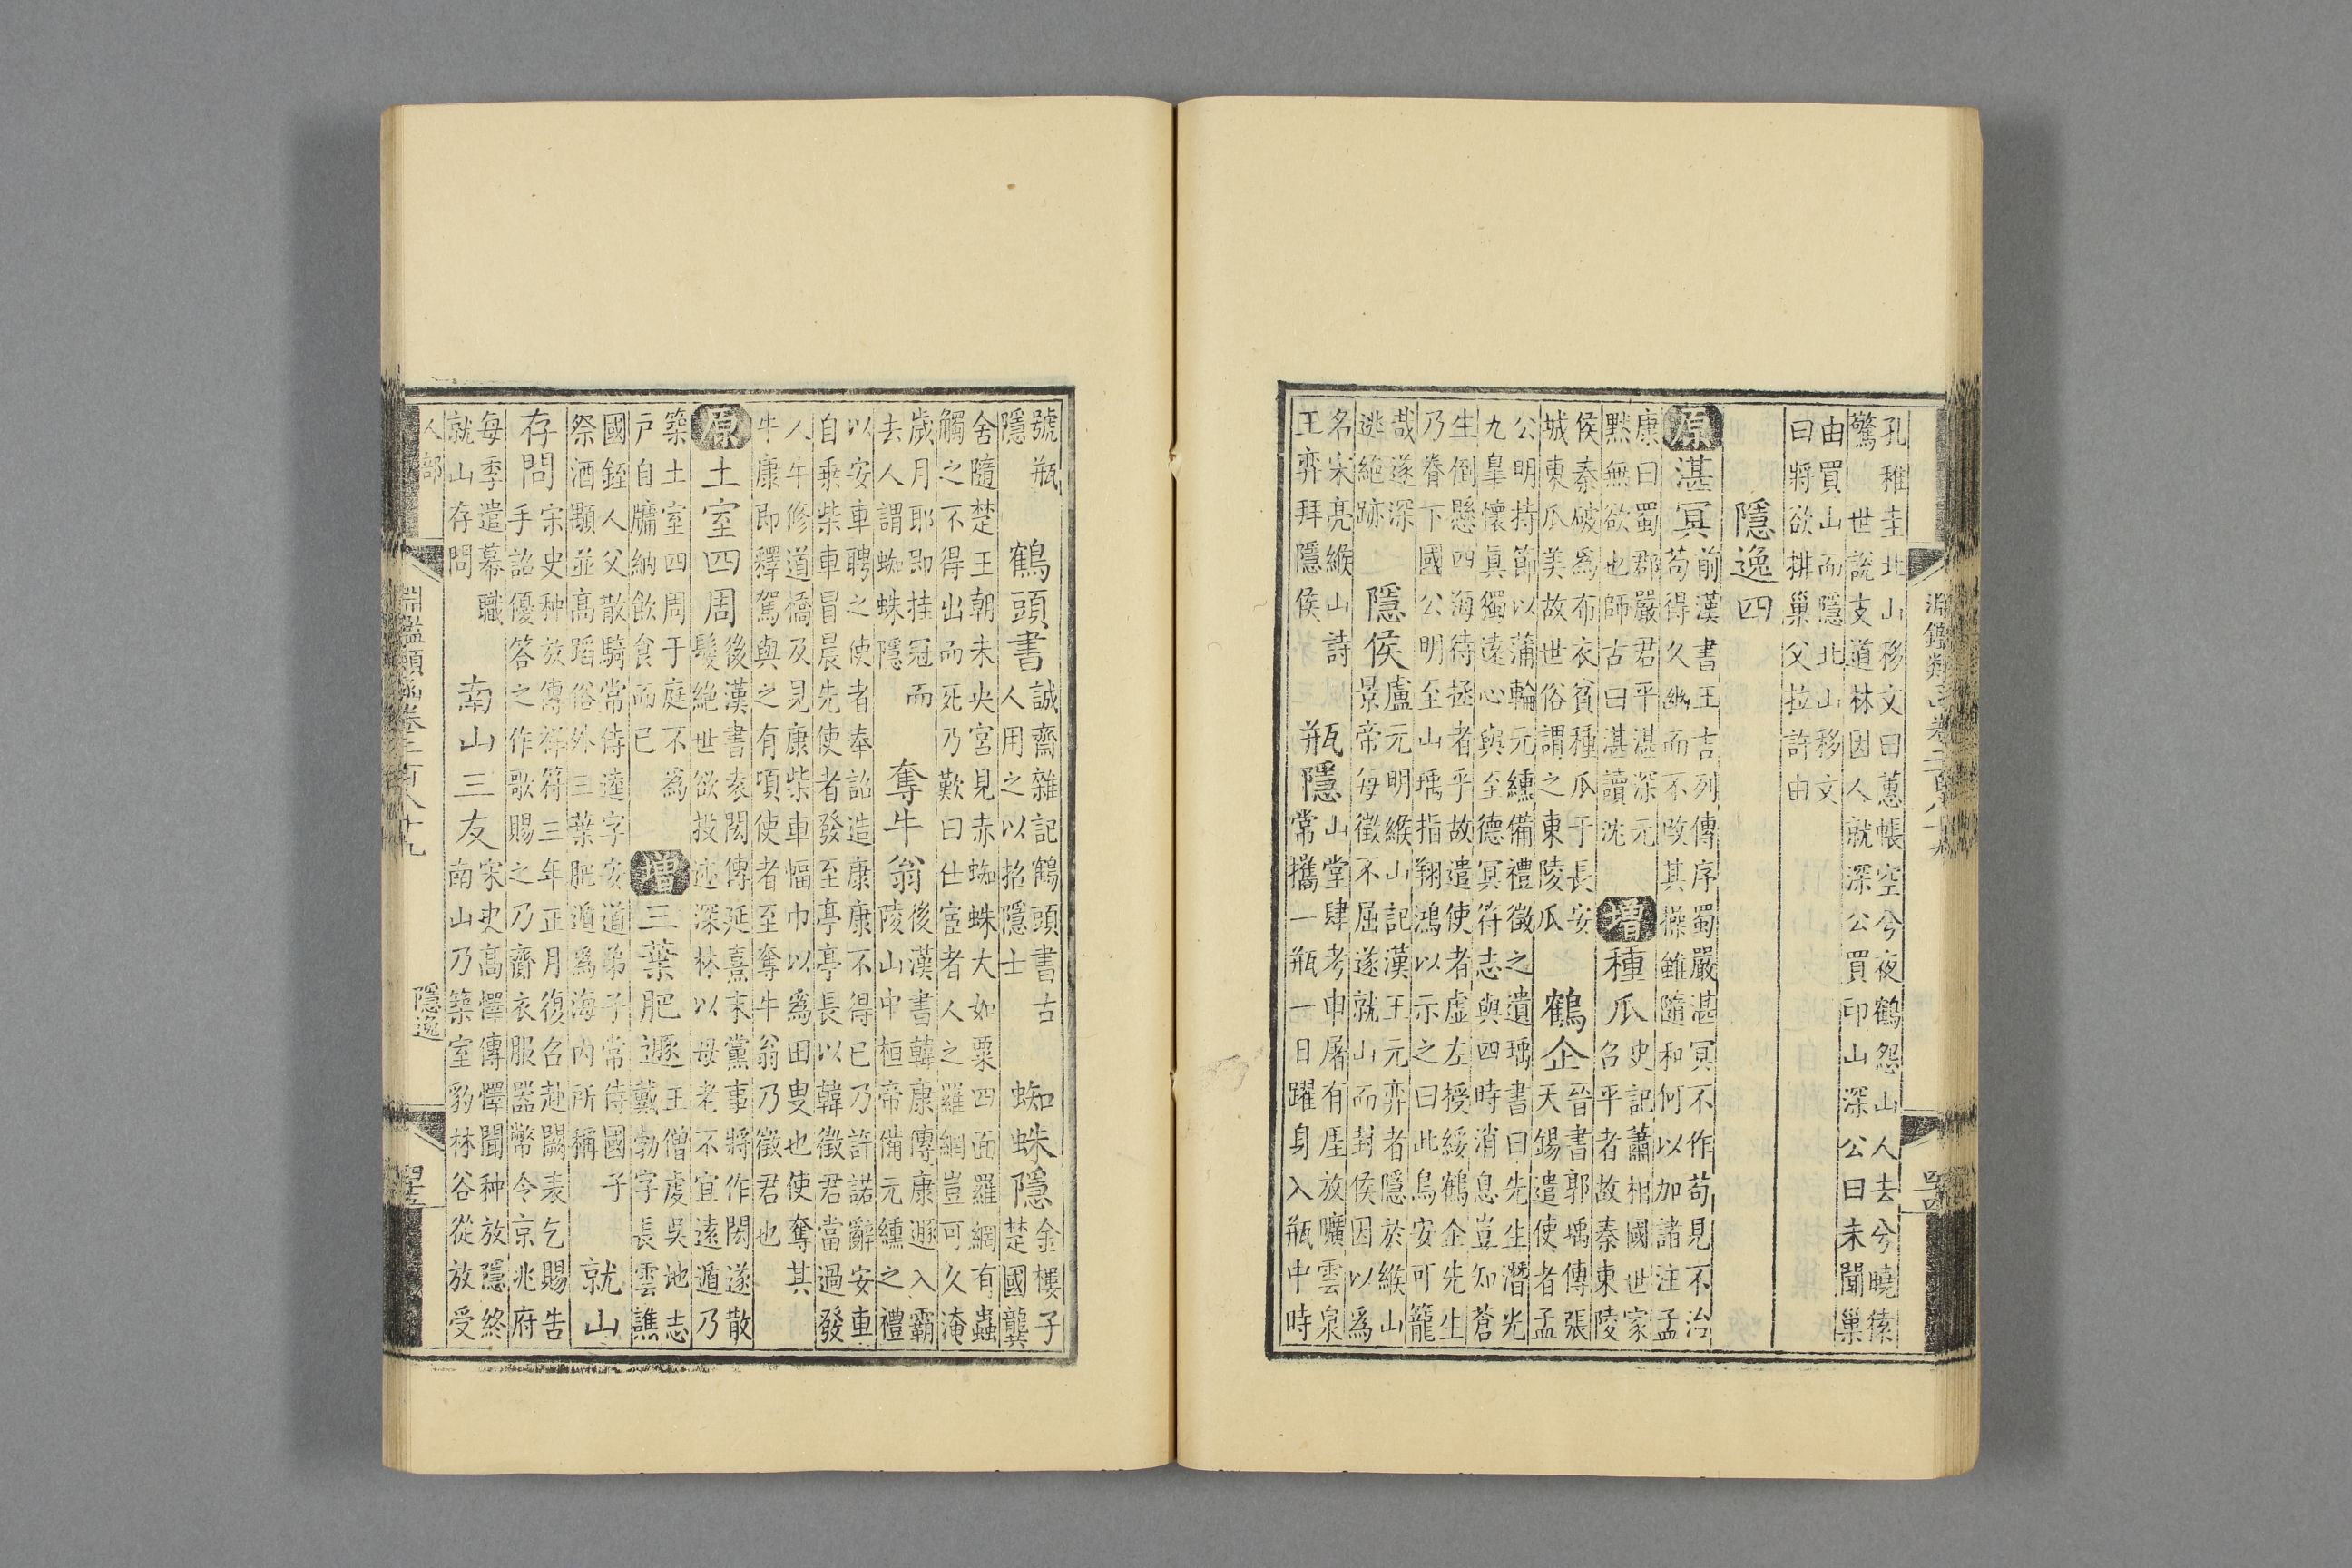 孔稚圭北山移文曰蕙帳空兮夜鶴怨山人去兮曉猿
驚世說支道林因人就深公買印山深公曰未聞巢
由買山而隱北山移文
曰將欲排巢父拉許由
隱逸四
原湛冥前漢書王吉列傳序蜀嚴湛冥不作苟見不治
苟得久幽而不改其操雖隨和何以加諸注孟
康曰蜀郡嚴君平湛深元
默無欲也師古曰湛讀沈
增種瓜史記蕭相國世家
召平者故秦東陵
侯秦破為布衣貧種瓜于長安
城東瓜美故世俗謂之東陵瓜
鶴企晉書郭瑀傳張
天錫遣使者孟
公明持節以蒲輪元纁備禮徵之遺瑀書曰先生潛光
九臯懷真獨遠心與至德冥符志與四時消息豈知蒼
生倒懸四海待拯者乎故遣使者虛左授綏鶴企先生
乃眷下國公明至山瑀指翔鴻以示之曰此鳥安可籠
哉遂深
逃絕跡
隱侯盧元明緱山記漢王元弈者隱於緱山
景帝每徵不屈遂就山而封侯因以為
名宋亮緱山詩
王弈拜隱侯
瓶隱山堂肆考申屠有厓放曠雲泉
常攜一瓶一日躍身入瓶中時
號瓶
隱
鶴頭書誠齋雜記鶴頭書古
人用之以招隱士
蜘蛛隱金樓子
楚國龔
舍隨楚王朝未央宮見赤蜘蛛大如粟四面羅網有蟲
觸之不得出而死乃歎曰仕宦者人之羅網豈可久淹
歲月耶即挂冠而
去人謂蜘蛛隱
奪牛翁後漢書韓康傳康遯入霸
陵山中桓帝備元纁之禮
以安車聘之使者奉詔造康康不得已乃許諾辭安車
自乘柴車冒晨先使者發至亭亭長以韓徵君當過發
人牛修道橋及見康柴車幅巾以為田叟也使奪其
牛康即釋駕與之有頃使者至奪牛翁乃徵君也
原土室四周後漢書袁閎傳延熹末黨事將作閎遂散
髮絕世欲投迹深林以母老不宜遠遁乃
築土室四周于庭不為
戶自牖納飲食而已
增三葉肥遯王僧虔吳地志
戴勃字長雲譙
國銍人父散騎常侍逵字安道弟子常侍國子
祭酒顒並高蹈俗外三葉肥遁為海內所稱
就山
存問宋史种放傳祥符三年正月復召赴闕表乞賜告
手詔優答之作歌賜之乃齎衣服器幣令京兆府
每季遣幕職
就山存問
南山三友宋史高懌傳懌聞种放隱終
南山乃築室豹林谷從放受
人部
淵鑑類函卷二百八十九
隱逸